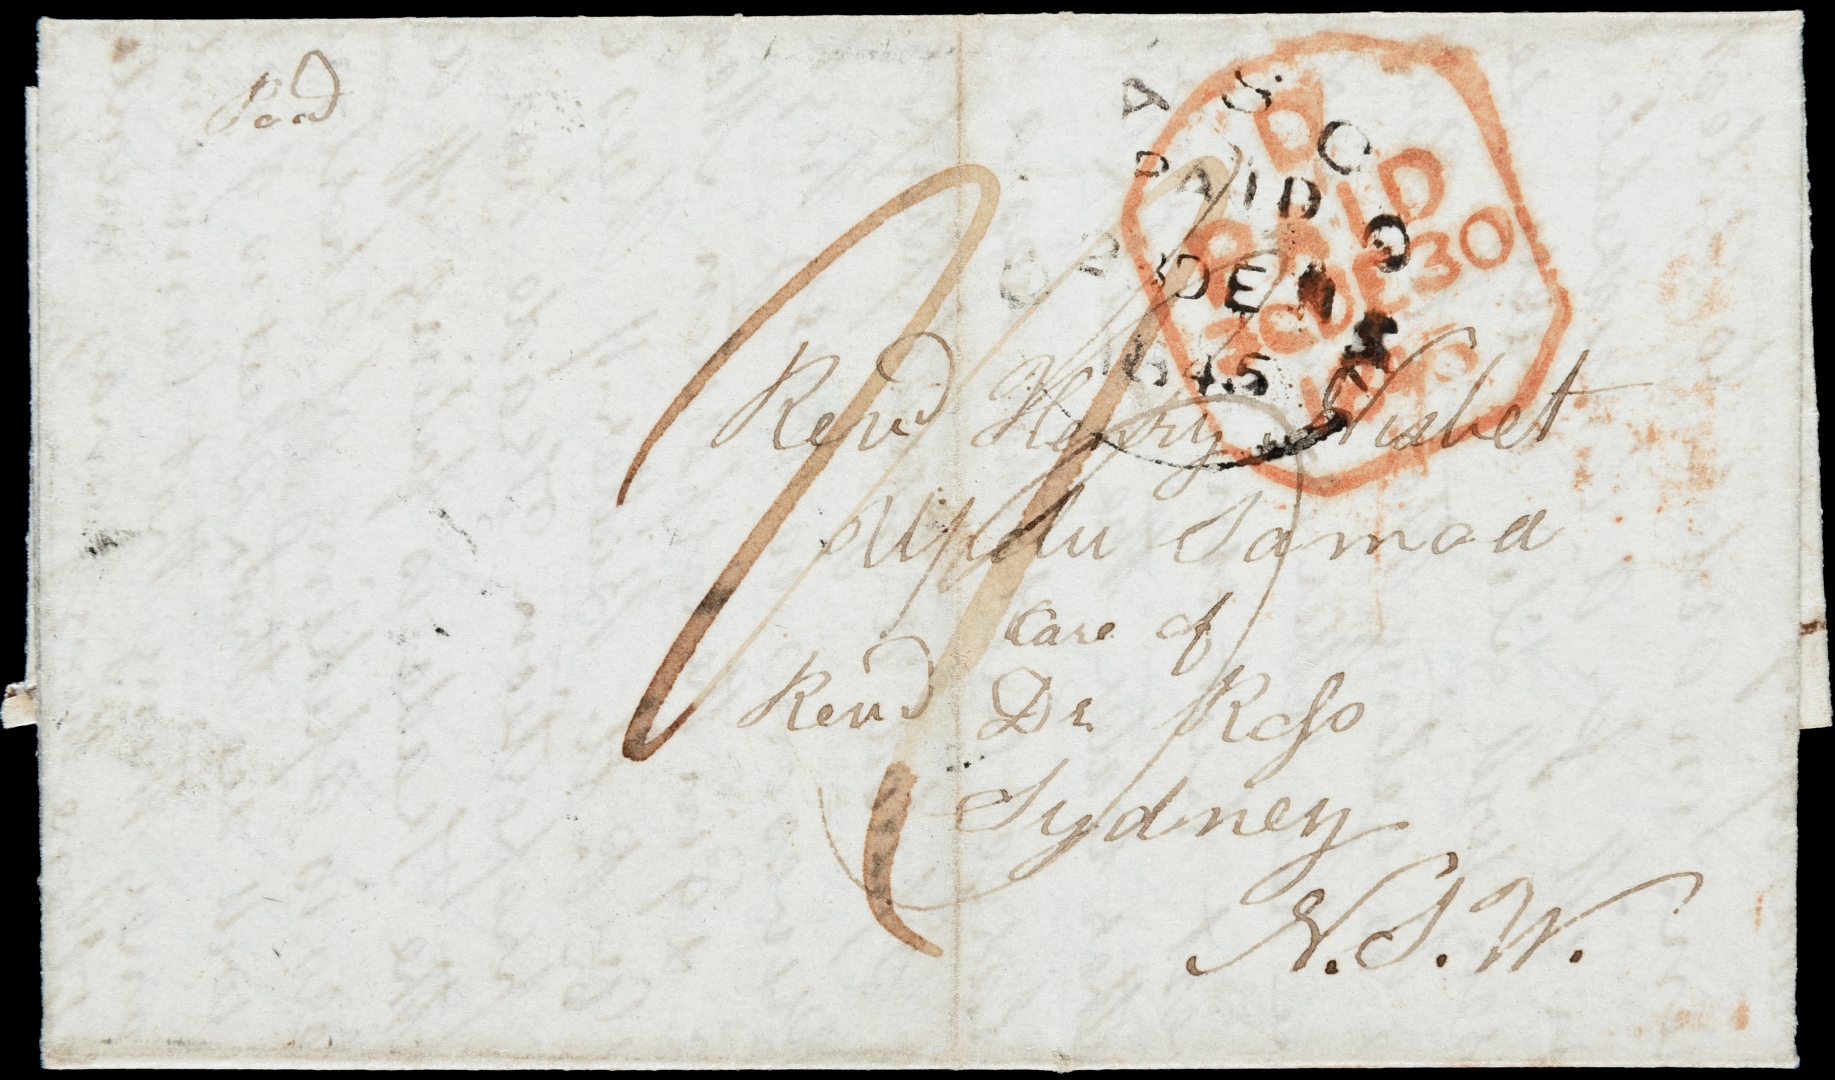 Paid
GLASGOW
PAID
DE
1845
PAID
30 DE 30
1845
Revd Henry Nisbet
Upolu Samoa
Care of
Revd Dr Ross
Sydney
N.S.W.